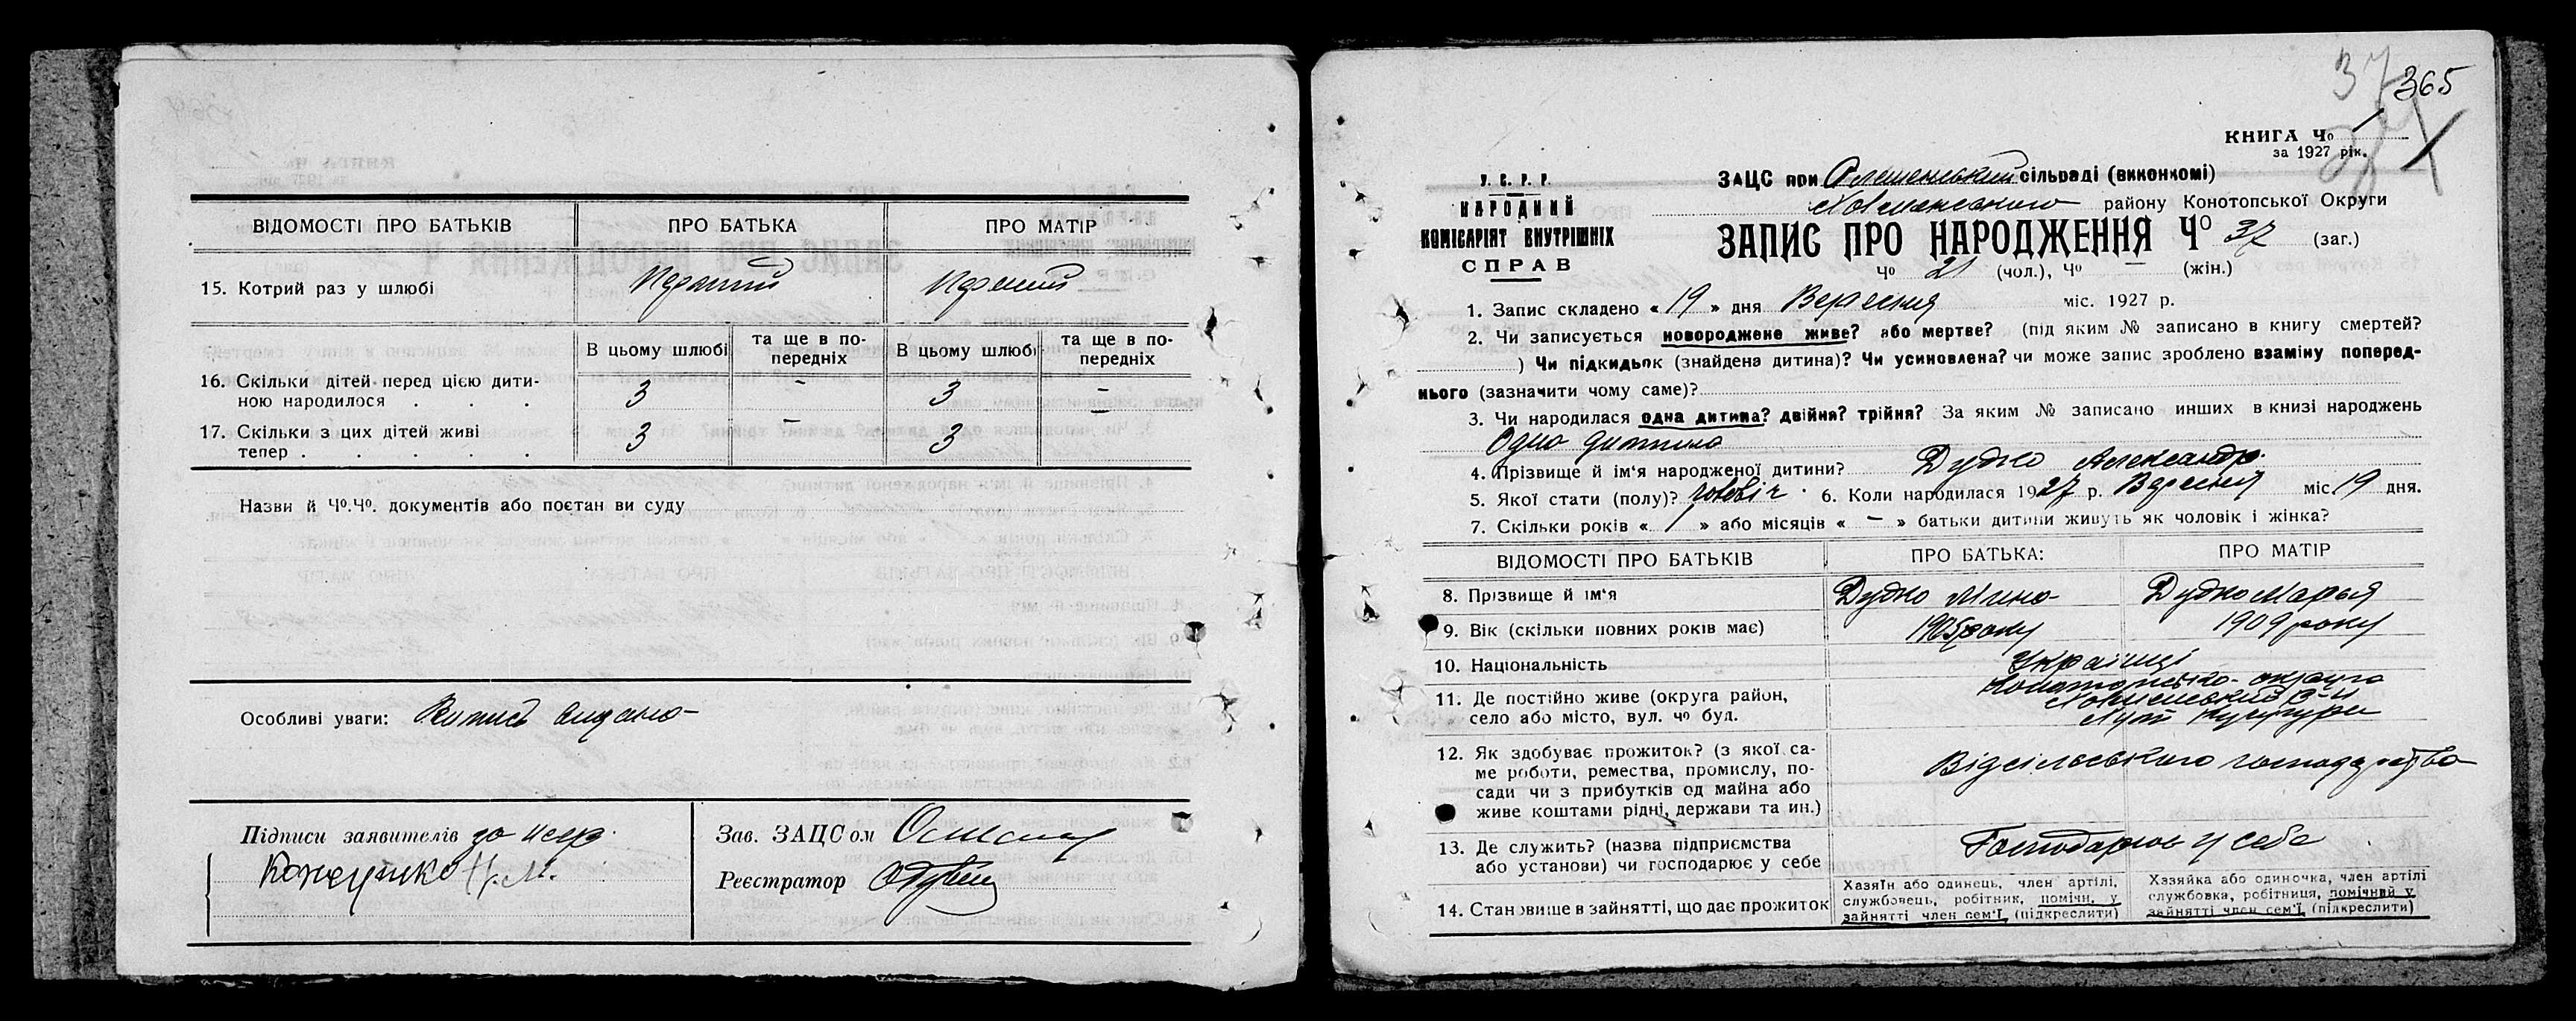 ВІДОМОСТІ ПРО БАТЬКІВ ПРО БАТЬКА ПРО МАТІР
15. Котрий раз у шлюбі Первший Первший
В цьому шлюбі та ще в по-передніх В цьому шлюбі та ще в по-передніх
16. Скільки дітей перед цією дити-
ною народилося . . . 3 – 3 –
17. Скільки з цих дітей живі
тепер . . . . . 3 – 3 –
Назви й Чо.Чо. документів або постан ви суду
Особливі уваги:
Підписи заявителів
Зав. ЗАЦСом
Реєстратор
37 365
КНИГА Чо 1
за 1927 рік.
У. С. Р. Р.
НАРОДНИЙ
КОМІСАРІЯТ ВНУТРІШНІХ
СПРАВ
ЗАЦС при сільраді (виконкомі)
району Конотопської Округи
ЗАПИС ПРО НАРОДЖЕННЯ Чо 37 (заг.)
Чо 21 (чол.), Чо – (жін.)
1. Запис складено « 19 » дня Вересня міс. 1927 р.
2. Чи записується новороджене живе? або мертве? (під яким № записано в книгу смертей?
) Чи підкидьок (знайдена дитина)? Чи усиновлена? чи може запис зроблено взаміну поперед-
нього (зазначити чому саме)?
3. Чи народилася одна дитина? двійня? трійня? За яким № записано инших в книзі народжень
Одна дитина
4. Прізвище й ім'я народженої дитини? Дудко Александр
5. Якої стати (полу)? чоловіч 6. Коли народилася 1927 р. Вересня міс. 19 дня.
7. Скільки років « 1 » або місяців « – » батьки дитини живуть як чоловік і жінка?
ВІДОМОСТІ ПРО БАТЬКІВ ПРО БАТЬКА: ПРО МАТІР
8. Прізвище й ім'я Дудко Мина Дудко Марья
9. Вік (скільки повних років має) 1905 року 1909 року
10. Національність Українці
11. Де постійно живе (округа район,
село або місто, вул. чо буд.
12. Як здобуває прожиток? (з якої са-
ме роботи, ремества, промислу, по-
сади чи з прибутків од майна або
живе коштами рідні, держави та ин.)
Від сільського господарства
13. Де служить? (назва підприємства
або установи) чи господарює у себе
Господарює у себе
14. Становище в зайнятті, що дає прожиток
Хазяїн або одинець, член артілі,
службовець, робітник, помічн. у
зайнятті член сем'ї (підкреслити)
Хазяйка або одиночка, член артілі
службовка, робітниця, помічний у
зайнятті член сем'ї (підкреслити)